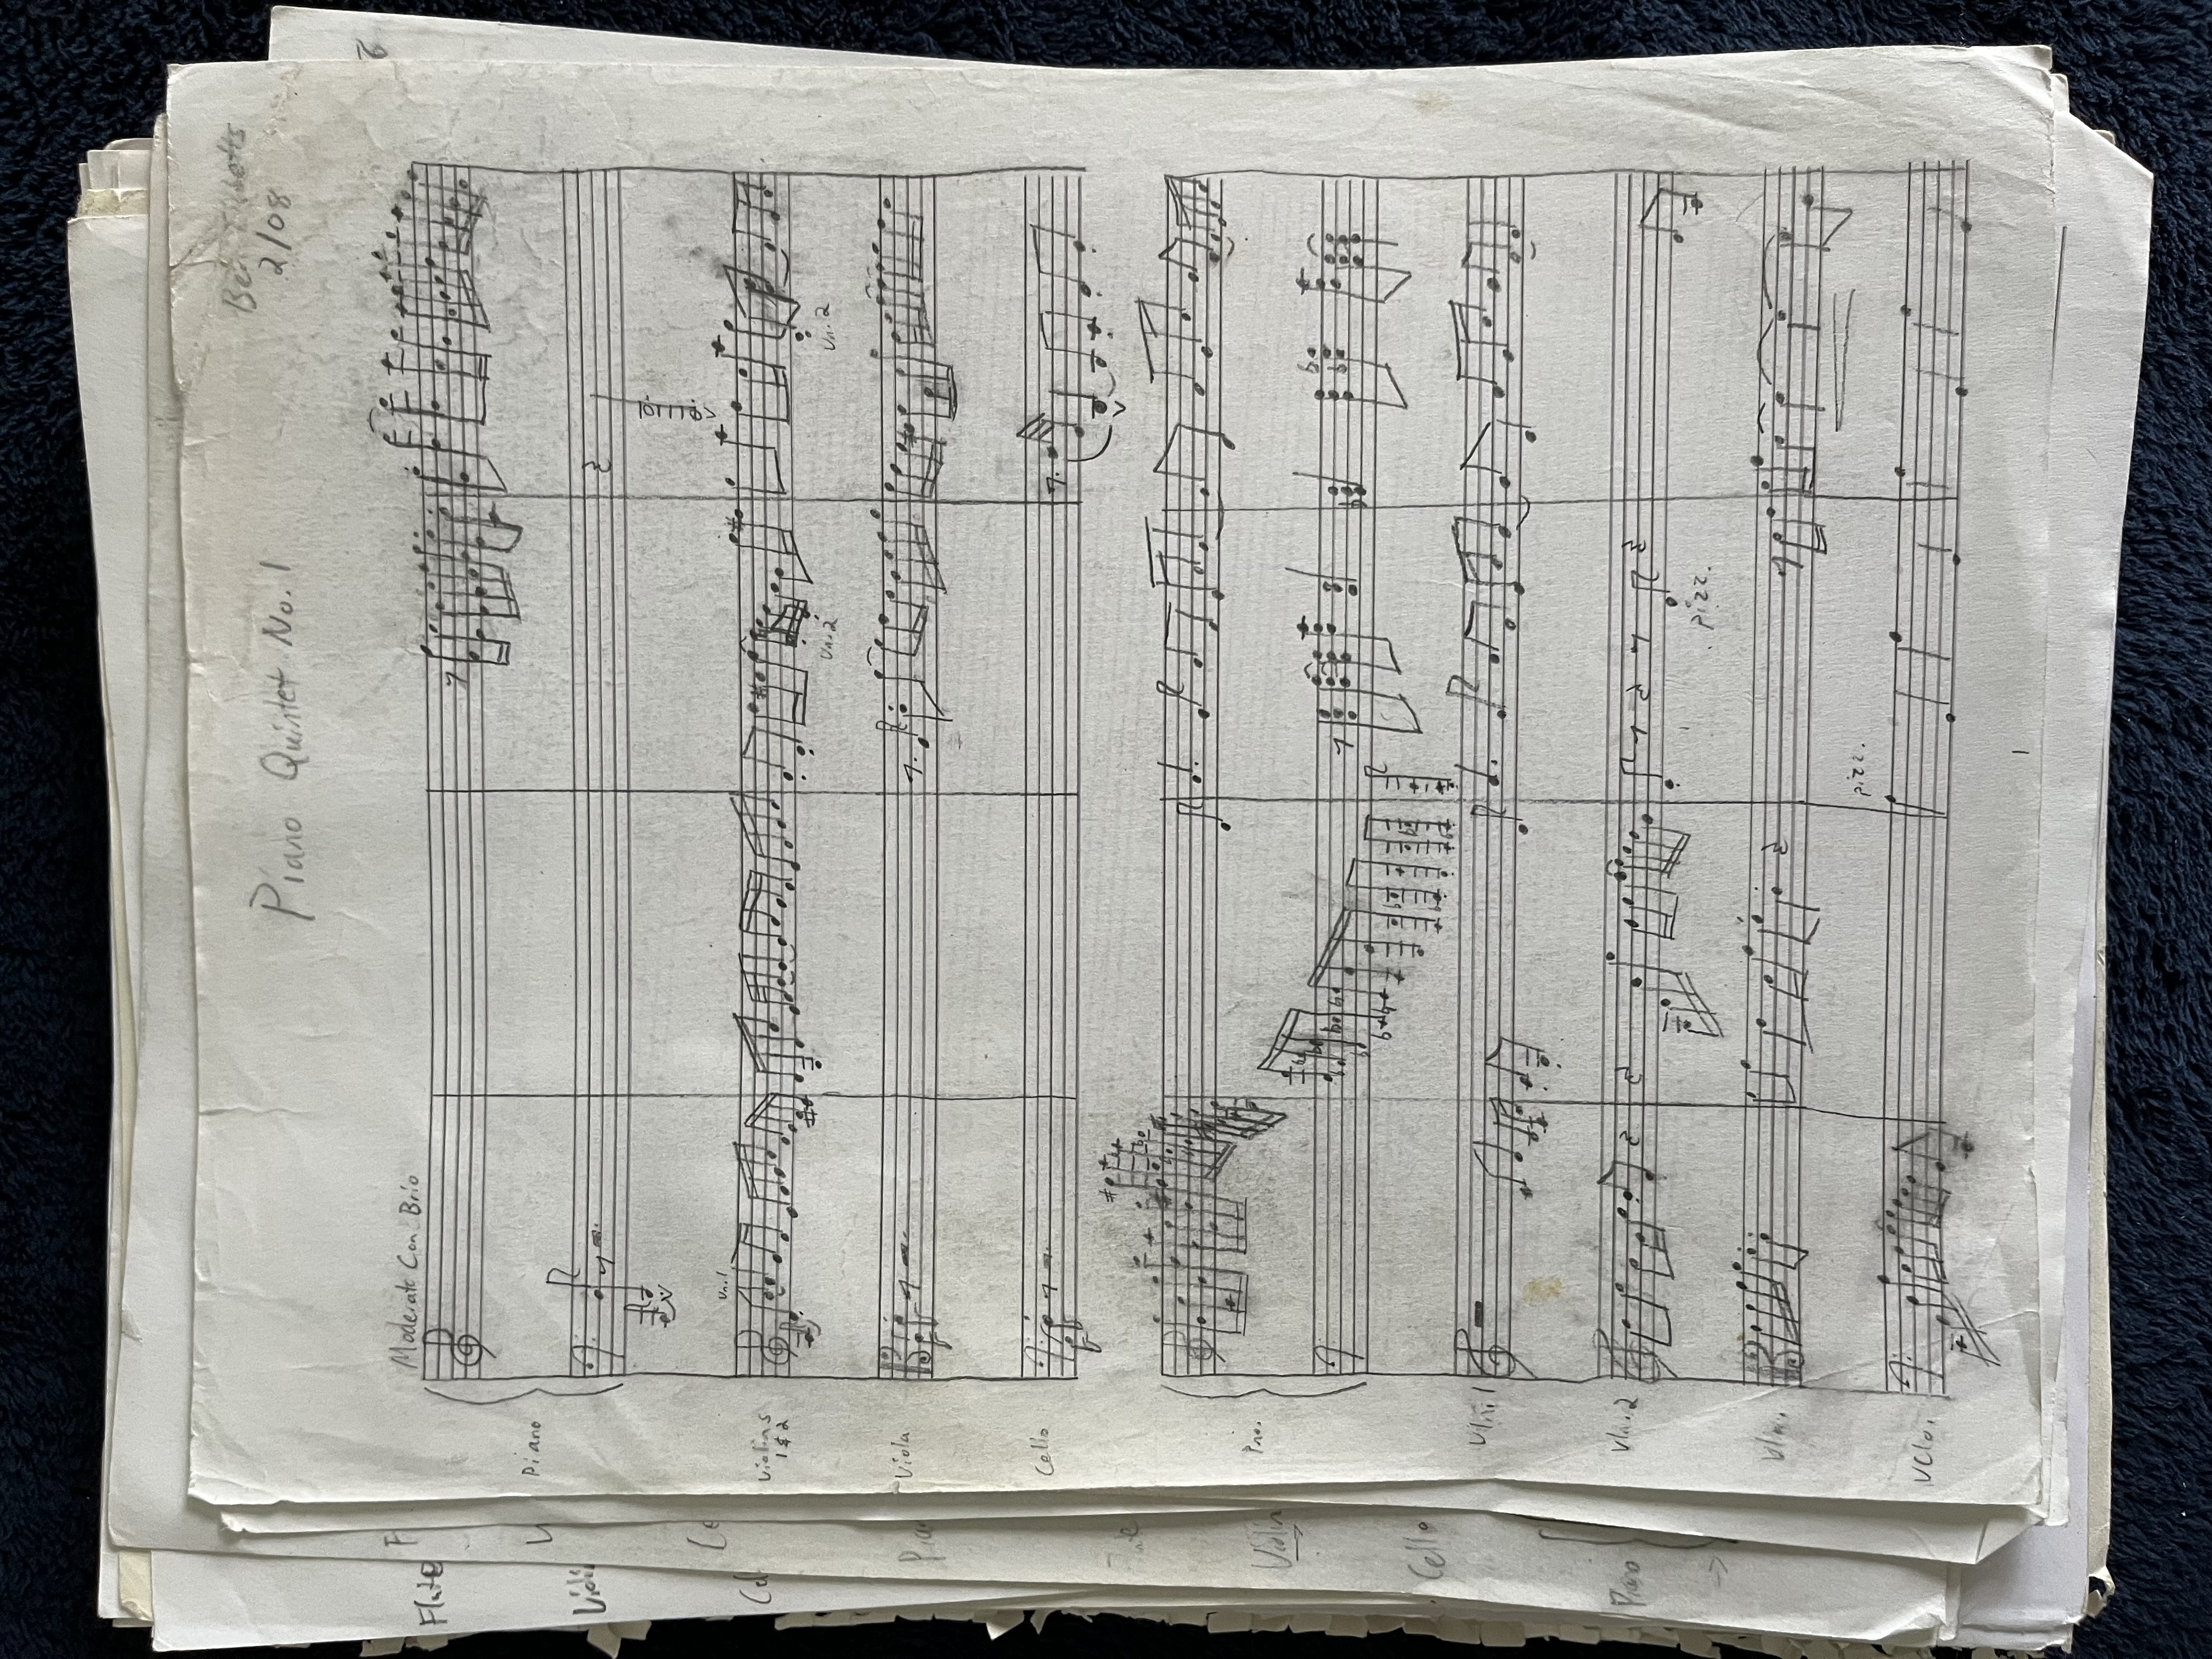 Piano Quintet No. 1
2/08
Moderato Con Brio
Piano
Violins
1 & 2
Vn. 1
Vn. 2
Vn. 2
Viola
Cello
Pno.
Vln. 1
Vln. 2
pizz.
Vla.
Vclo.
pizz.
1
2
Flute
Cello
Piano
Violin